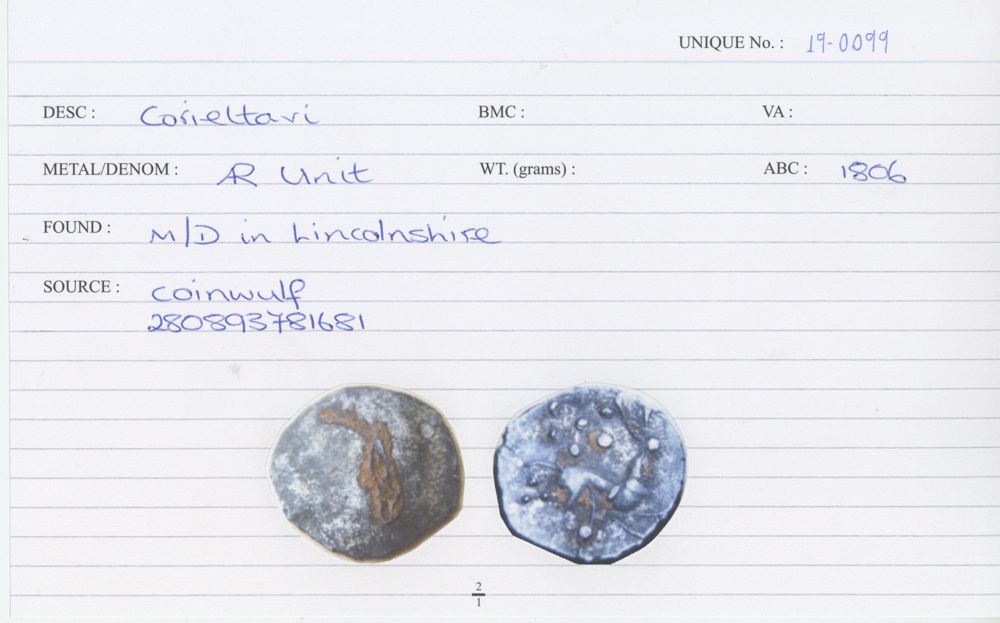 UNIQUE No. : 19-0099
DESC : Corieltavi BMC : VA :
METAL/DENOM : AR Unit WT. (grams) : ABC : 1806
FOUND : M/D in Lincolnshire
SOURCE : coinwulf
280893781681
2
1